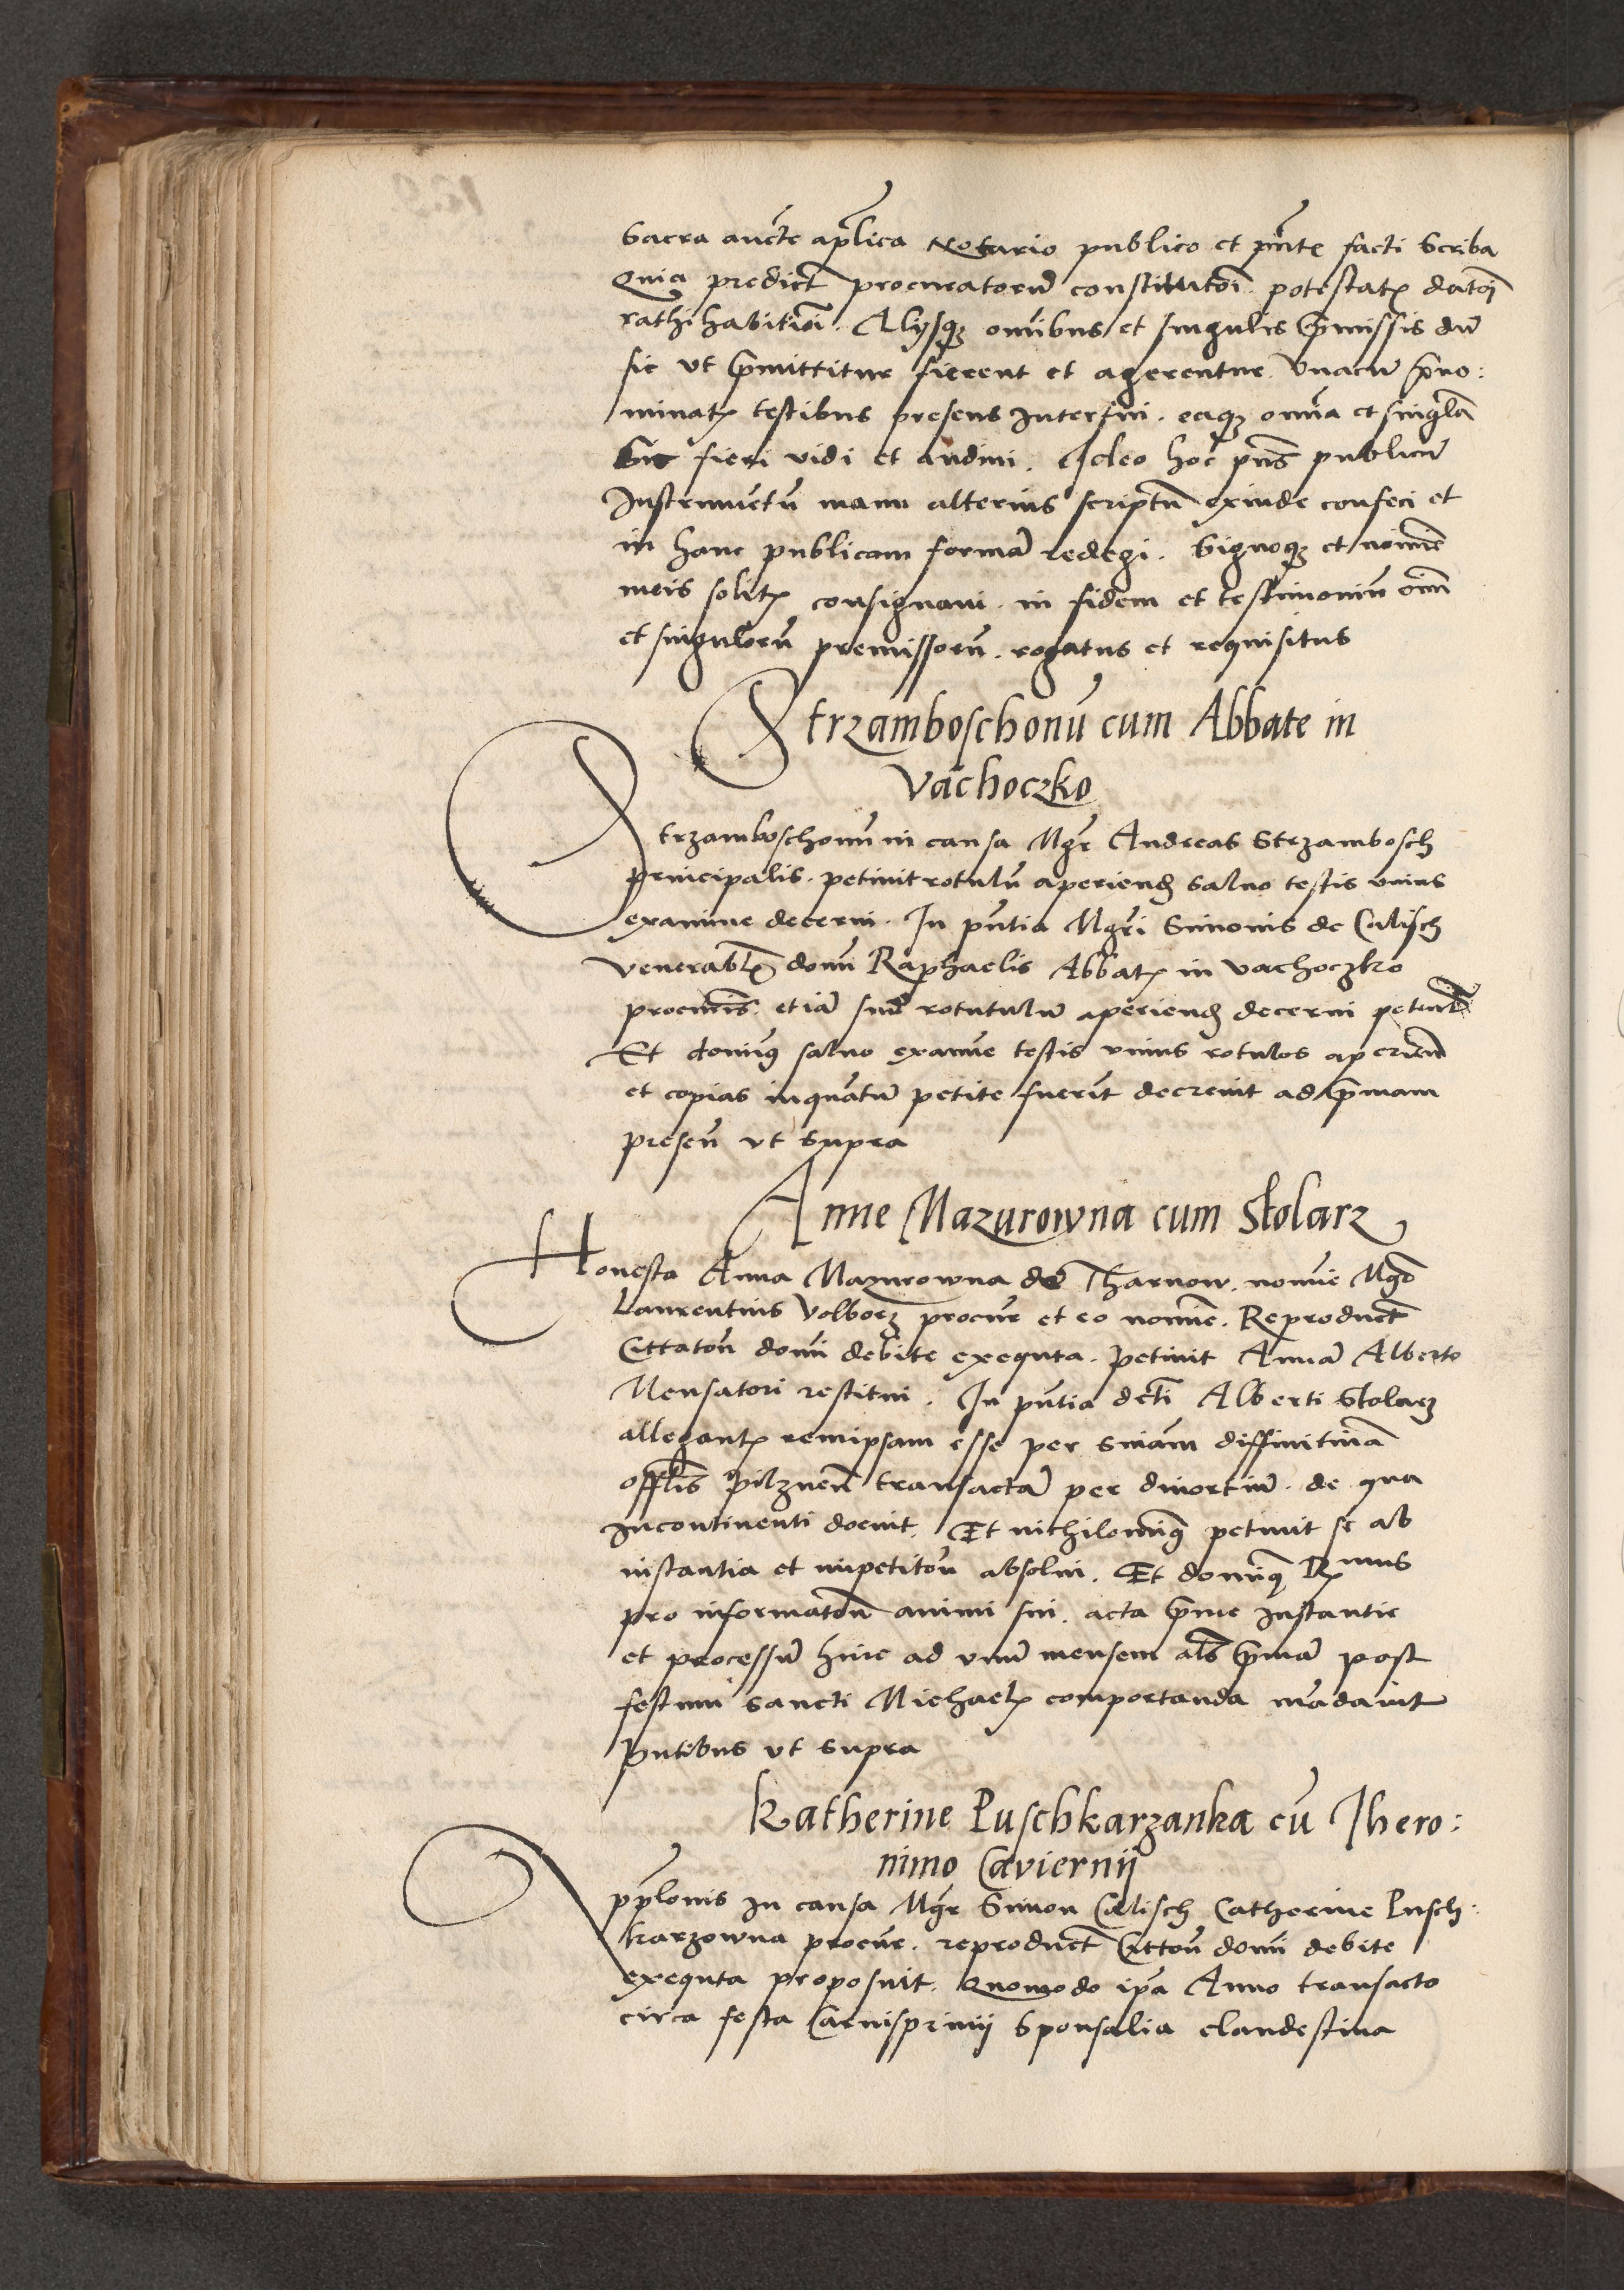 Sacra aucte aplica Notario publico et pnte facti Scriba
Quia predict procuratorū constitutoi potestatꝫ datoi
rathihabitioi. Alysqꝫ omībus et singulis pmissis dū
sic vt pmittitur fierent et agerentur Vnacū pno:
minatꝫ testibus presens Interfui. eaqꝫ omīa et singla
Sic fieri vidi et audiui. Ideo hoc pns publicū
Instrumētū manu alterius scriptū exinde confeci et
in hanc publicam formā redegi. Signoqꝫ et noīme
meis solitꝫ consignaui in fidem et testimoniū oīm
et singulorū premissorū. rogatus et requisitus
Strzamboschonū cum Abbate in
Vachoczko
Strzamboschonū in causa Mgr Andreas Strzambosch
principalis. petiuit rotulū aperiend saluo testis vnius
examine decerni. In pntia Mgri Simonis de Calisch
Venerabil domī Raphaelis Abbatꝫ in Vachoczko
procuris etiā suū rotutulum aperiend decerni petentis
Et domīnꝰ saluo examīe testis vnius rotulos aperiend
et copias inquātum petite fuerit decreuit ad pmam
presen vt supra
Anne Mazurowna cum Stolarz
Honesta Anna Mazurowna de Tharnow. nomīe Mgr
Laurentius Volborz procur et eo nomīe. Reproduct
Cittatōn domī debite exequta. petiuit Annā Alberto
Mensatori restitui. In pntia dcti Alberti Stolarz
allegantꝫ remipsam esse per sniam diffinitiuā
offlis pilznen transactā per diuortiū. de qua
incontinenti docuit. Et nichilominꝰ petiuit se ab
instantia et impetitōn absolui. Et domīnꝰ Rmus
pro informatōn animi sui. acta pme instantie
et processū hinc ad vnū mensem als pmā post
festum sancti Michaelꝫ comportanda mādauit
pntibus vt supra
Katherine Puschkarzanka cū Jhero:
nimo Caviernij
Opplonis in causa Mgr Simon Calisch Catherine Pusch:
karzowna procur. reproduct Cittōn domī debite
exequta proposuit. Quomodo ipa Anno transacto
circa festa Carnispriuij Sponsalia clandestina